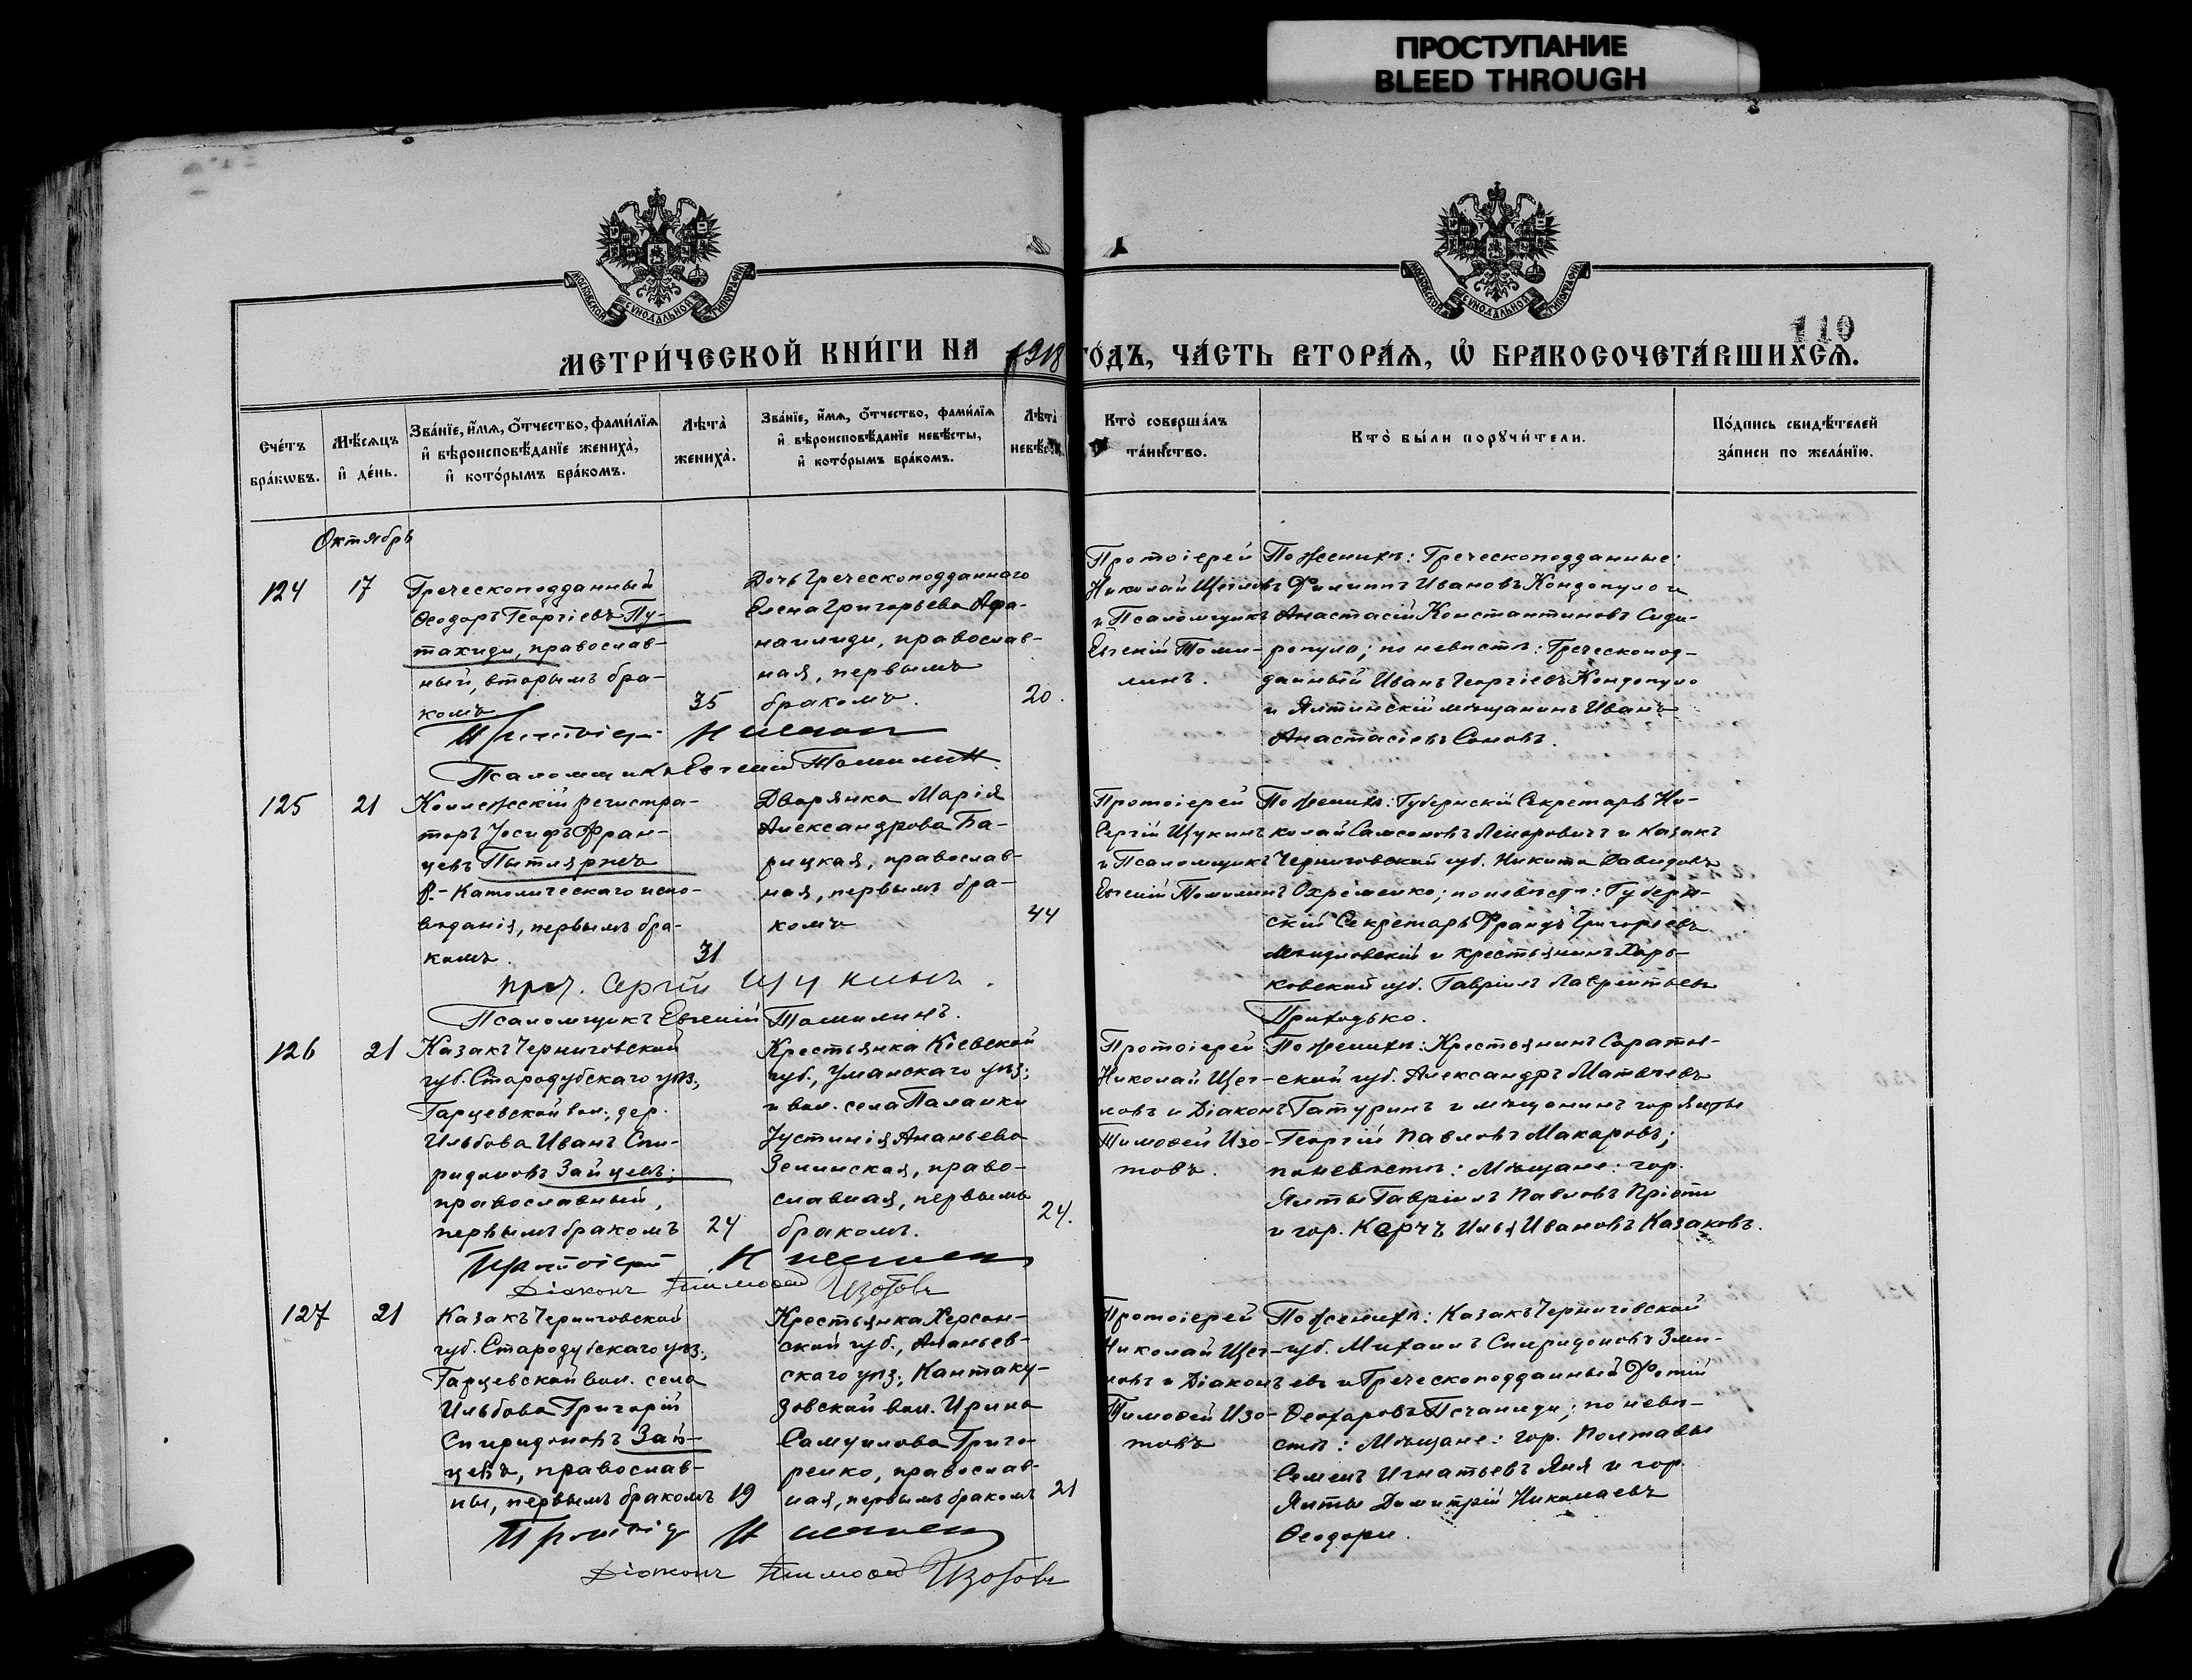 ПРОСТУПАНИЕ
BLEED THROUGH
МОСКОВСКОЙ СѴНОДАЛЬНОЙ ТИПОГРАФІИ
МОСКОВСКОЙ СѴНОДАЛЬНОЙ ТИПОГРАФІИ
110
МЕТРИ́ЧЕСКОЙ КНИ́ГИ НА 1918
ГО́ДЪ, ЧА́СТЬ ВТОРА́Я, Ѡ҆ БРАКОСОЧЕТА́ВШИХСЯ.
Сче́тъ бра́кѡвъ.
Мѣ́сяцъ и҆ де́нь.
Зва́нїе, и҆́мя, ѻ҆́тчество, фами́лїя
и҆ вѣроисповѣ́данїе жениха̀,
и҆ кото́рымъ бра́комъ.
Лѣта̀ жениха̀.
Зва́нїе, и҆́мя, ѻ҆́тчество, фами́лїя
и҆ вѣроисповѣ́данїе невѣ́сты,
и҆ кото́рымъ бра́комъ.
Лѣта̀ невѣ́сты.
Кто̀ соверша́лъ
та́инство.
Кто̀ бы́ли порꙋчи́тели.
По́дпись свидѣ́телей
за́писи по жела́нїю.
Октябрь
124
17
Греческоподданный
Ѳеодоръ Георгіевъ Пу-
тахиди, православ-
ный, вторымъ бра-
комъ
35
Дочь Греческоподданнаго
Елена Григорьева Афа-
наилиди, православ-
ная, первымъ
бракомъ.
20.
Протоіерей
Николай Щегловъ
и Псаломщикъ
Евгеній Томи-
линъ.
По женихѣ: Греческоподданные:
Филиппъ Ивановъ Кондопуло и
Анастасій Константиновъ Сиди-
ропуло; по невѣстѣ: Греческопод-
данный Иванъ Георгіевъ Кондопуло
и Ялтинскій мѣщанинъ Иванъ
Анастасіевъ Соновъ.
Протоіерей Н Щеглов
Псаломщикъ Евгеній Томилинъ.
125
21
Коллежскій регистра-
торъ Іосифъ Фран-
цевъ Пытляржъ
Р.-Католическаго испо-
вѣданія, первымъ бра-
комъ.
31
Дворянка Марія
Александрова Ба-
рицкая, православ-
ная, первымъ бра-
комъ
44
Протоіерей
Сергій Щукинъ
и Псаломщикъ
Евгеній Томилинъ
По женихѣ: Губернскій Секретарь Ни-
колай Самсоновъ и Казакъ
Черниговской губ. Никита Давидовъ
Охрименко; по невѣстѣ: Губерн-
скій Секретарь Францъ Григорьевъ
и крестьянинъ Харь-
ковской губ. Гавріилъ Лаврентьевъ
Приходько.
прот. Сергій Щукинъ.
Псаломщикъ Евгеній Томилинъ.
126
21
Казакъ Черниговской
губ. Стародубскаго уѣз.,
Гарцевской вол., дер.
Ильбова Иванъ Спи-
ридоновъ Зайцевъ;
православный,
первымъ бракомъ
24
Крестьянка Кіевской
губ., Уманскаго уѣз.,
и вол. села Паланки
Іустинія Ананьева
Зелинская, право-
славная, первымъ
бракомъ.
24.
Протоіерей
Николай Щег-
ловъ и Діаконъ
Тимоѳей Изо-
товъ.
По женихѣ: Крестьянинъ Саратов-
ской губ. Александръ Матвѣевъ
Татуринъ и мѣщанинъ гор Ялты
Георгій Павловъ Макаровъ;
по невѣстѣ: Мѣщане: гор.
Ялты Гавріилъ Павловъ Пріоти
и гор. Керчь Илья Ивановъ Казаковъ.
Протоіерей Н Щеглов
Діаконъ Тимоѳей Изотовъ
127
21
Казакъ Черниговской
губ. Стародубскаго уѣз.,
Гарцевской вол. села
Ильбова Григорій
Спиридоновъ Зай-
цевъ, православ-
ны, первымъ бракомъ
19
Крестьянка Херсон-
ской губ., Ананьев-
скаго уѣз., Кантаку-
зовской вол. Ирина
Самуилова Григо-
ренко, православ-
ная, первымъ бракомъ
21
Протоіерей
Николай Щег-
ловъ и Діаконъ
Тимоѳей Изо-
товъ
По женихѣ: Казакъ Черниговской
губ. Михаилъ Спиридоновъ
евъ и Греческоподданный Фотій
Ѳеохаровъ Псчаниди; по невѣ-
стѣ: Мѣщане: гор. Полтавы
Семенъ Игнатьевъ Яня и гор.
Ялты Димитрій Николаевъ
Ѳеодори.
Протоіер Н Щеглов
Діаконъ Тимоѳей Изотовъ